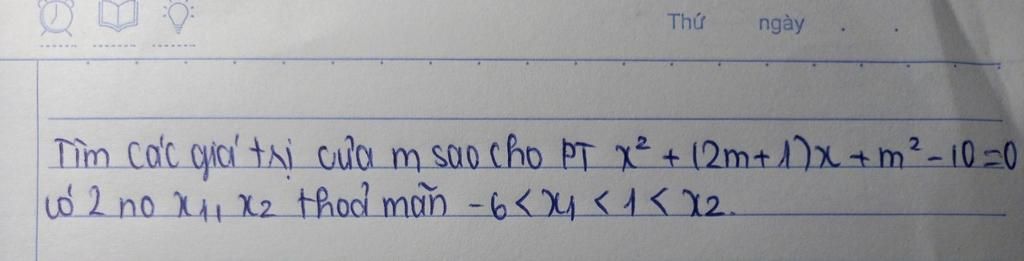 Thứ ngày . .
Tìm các giá trị của m sao cho PT x² + (2m+1)x + m² - 10 = 0
có 2 no x₁, x₂ thoả mãn -6 < x₁ < 1 < x₂.